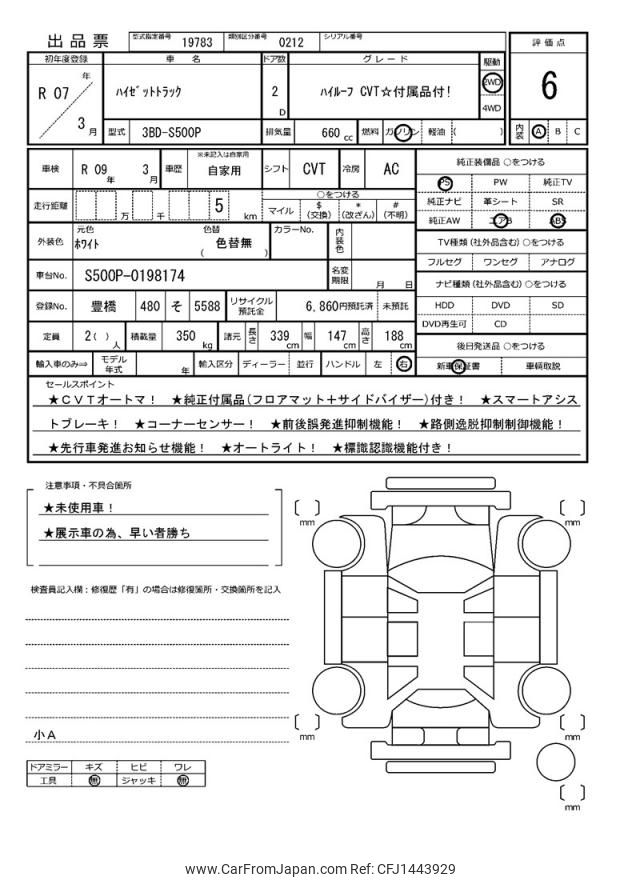 出品票 型式指定番号 19783 類別区分番号 0212 シリアル番号
評価点
6
内装 A B C
初年度登録 車名 ドア数 グレード 駆動
R 07 年 3 月
ハイゼットトラック 2 D ハイルーフ CVT☆付属品付! 2WD 4WD
型式 3BD-S500P 排気量 660 cc 燃料 ガソリン 軽油 ( )
車検 R 09 年 3 月 車歴 ※未記入は自家用 自家用 シフト CVT 冷房 AC
走行距離 万 千 5 km ○をつける マイル $(交換) *(改ざん) #(不明)
外装色 元色 ホワイト 色替 色替無 ( ) カラーNo. 内装色
車台No. S500P-0198174 名変期限 月 日
登録No. 豊橋 480 そ 5588 リサイクル預託金 6,860円預託済 未預託
定員 2( )人 積載量 350 kg 諸元 長さ 339 cm 幅 147 cm 高さ 188 cm
輸入車のみ⇒ モデル年式 年 輸入区分 ディーラー 並行 ハンドル 左 右
純正装備品 ○をつける
PS PW 純正TV
純正ナビ 革シート SR
純正AW エアB ABS
TV種類(社外品含む)○をつける
フルセグ ワンセグ アナログ
ナビ種類(社外品含む)○をつける
HDD DVD SD
DVD再生可 CD
後日発送品 ○をつける
新車保証書 車輌取説
セールスポイント
★CVTオートマ! ★純正付属品(フロアマット+サイドバイザー)付き! ★スマートアシス
トブレーキ! ★コーナーセンサー! ★前後誤発進抑制機能! ★路側逸脱抑制制御機能!
★先行車発進お知らせ機能! ★オートライト! ★標識認識機能付き!
注意事項・不具合箇所
★未使用車!
★展示車の為、早い者勝ち
検査員記入欄:修復歴「有」の場合は修復箇所・交換箇所を記入
小A
ドアミラー キズ ヒビ ワレ
工具 無 ジャッキ 無
mm
mm
mm
mm
mm
www.CarFromJapan.com Ref: CFJ1443929